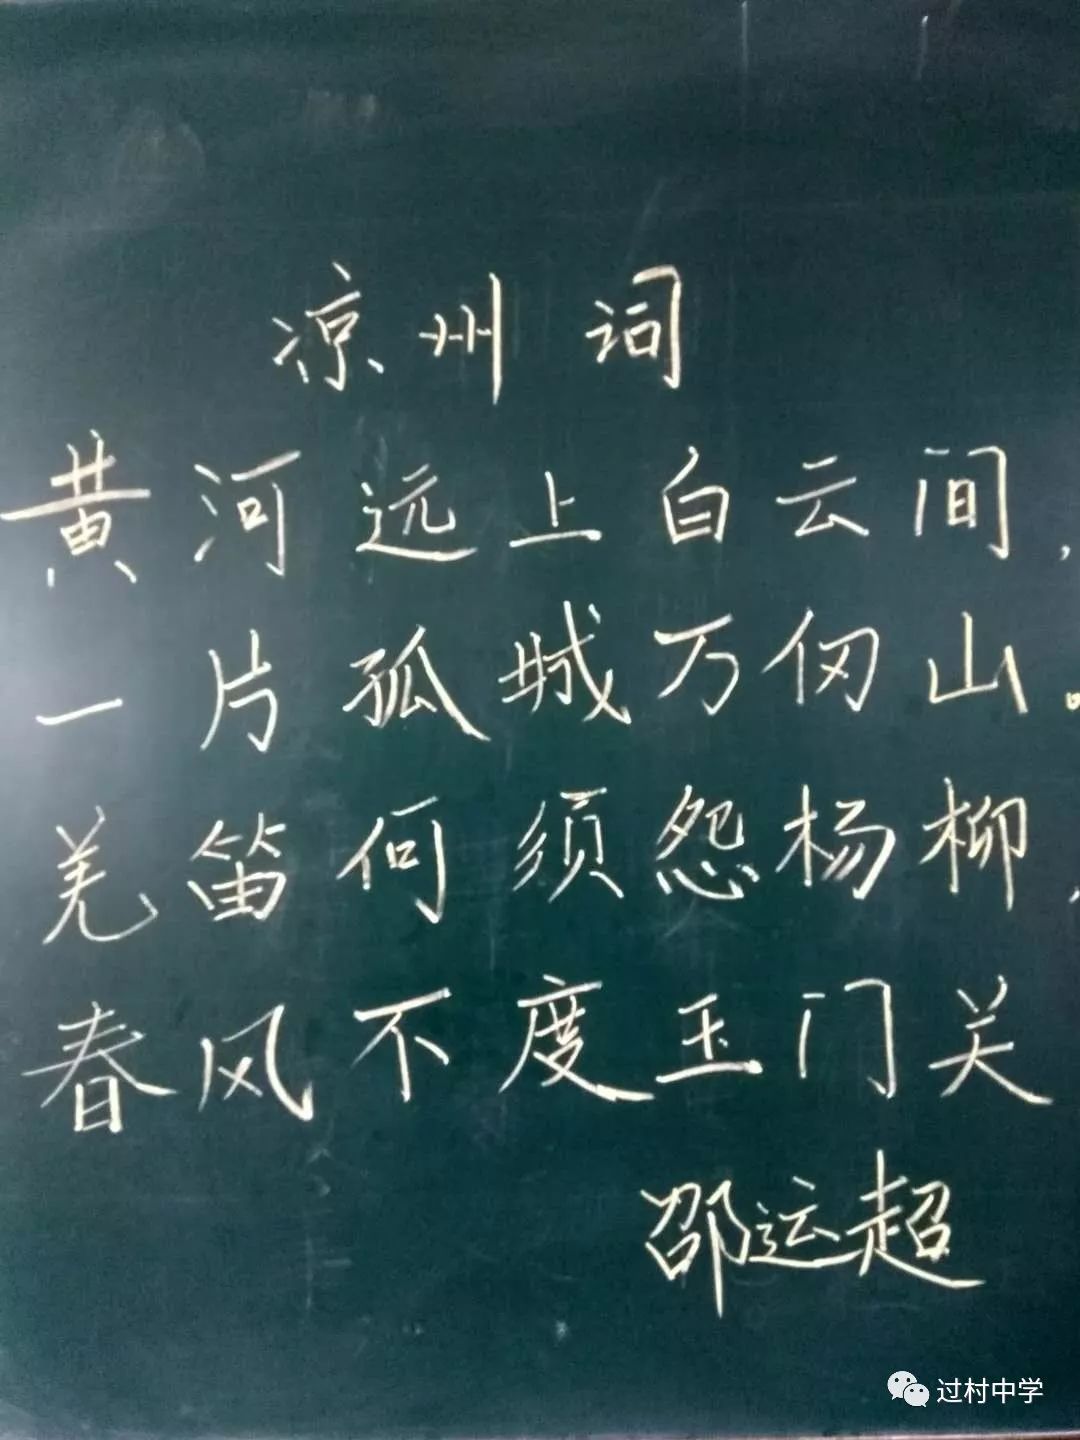 凉州词
黄河远上白云间，
一片孤城万仞山。
羌笛何须怨杨柳，
春风不度玉门关
邵运超
过村中学